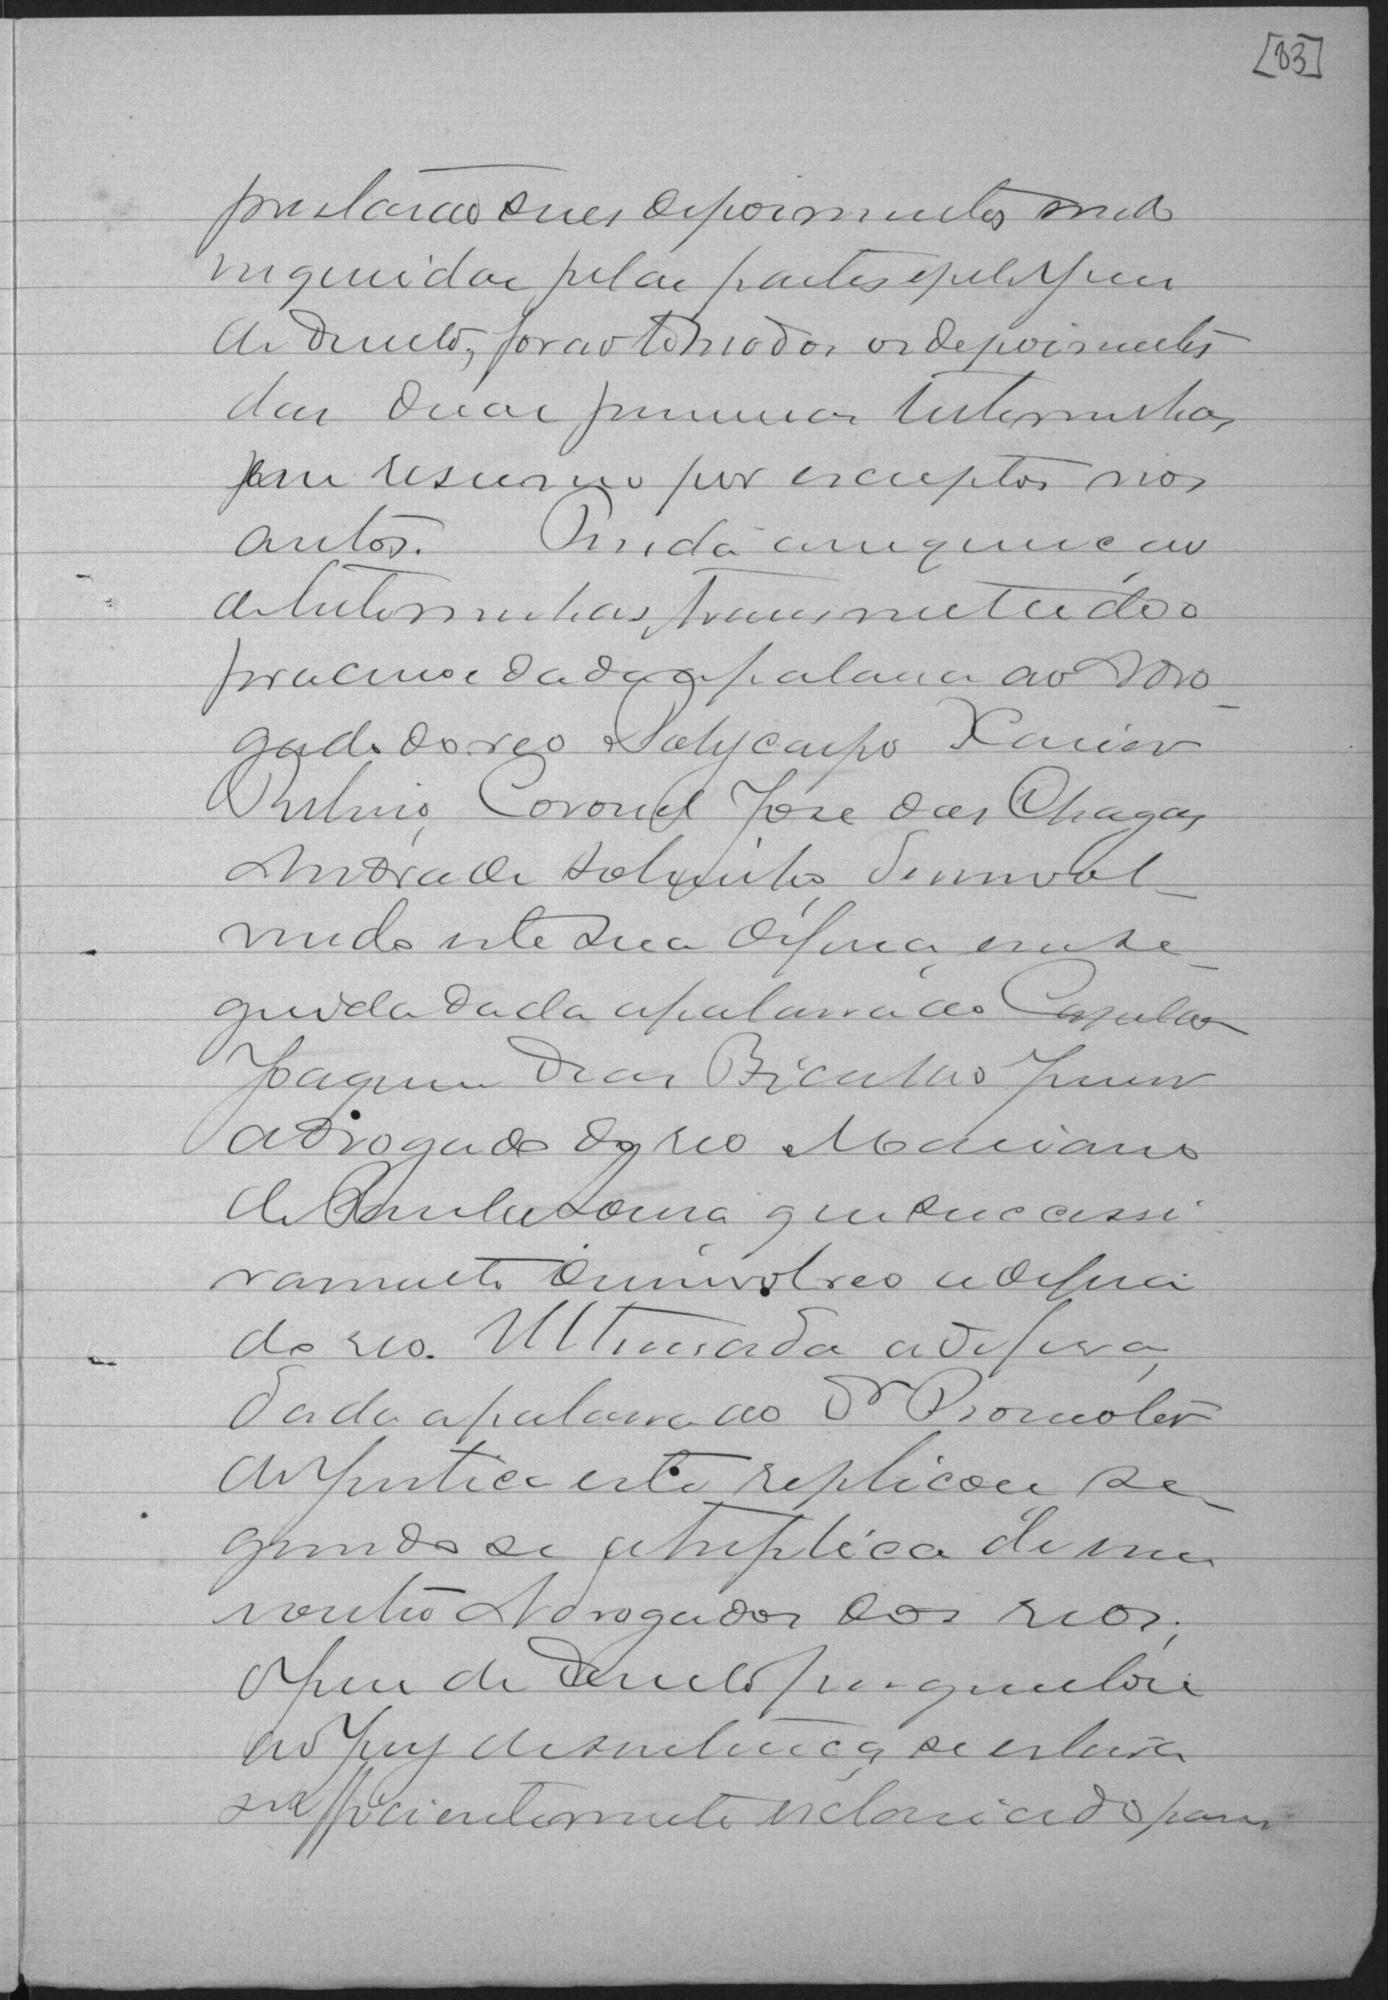 [83]
prestarão seus depoimentos sendo
inqueridas pelas partes e pelo Juiz
de Direito, forão tomados os depoimentos
das duas primeiras testemunhas
em resumo por escriptos nos
autos. Finda a inquirição
de testemunhas, transmettido o
processo e dada a palavra ao Advo-
gado do reo Polycarpo Xavier
Coronel Jose das Chagas
Andrade Sobrinho, desinvol-
vendo este sua defesa, em se-
guida dada a palavra ao Capitão
Joaquim Dias Bicalho Junior
advogado do reo Marciano
de Souza que successi
vamente desinvolveo a defesa
do reo. Ultimada a defesa,
dada a palavra ao Dr Promotor
de Justica este replicou se-
guindo se a treplica de
Advogados dos reos;
o Juiz de Direito perguntou
ao Jury de sentença se estava
sufficientemente esclarecido para